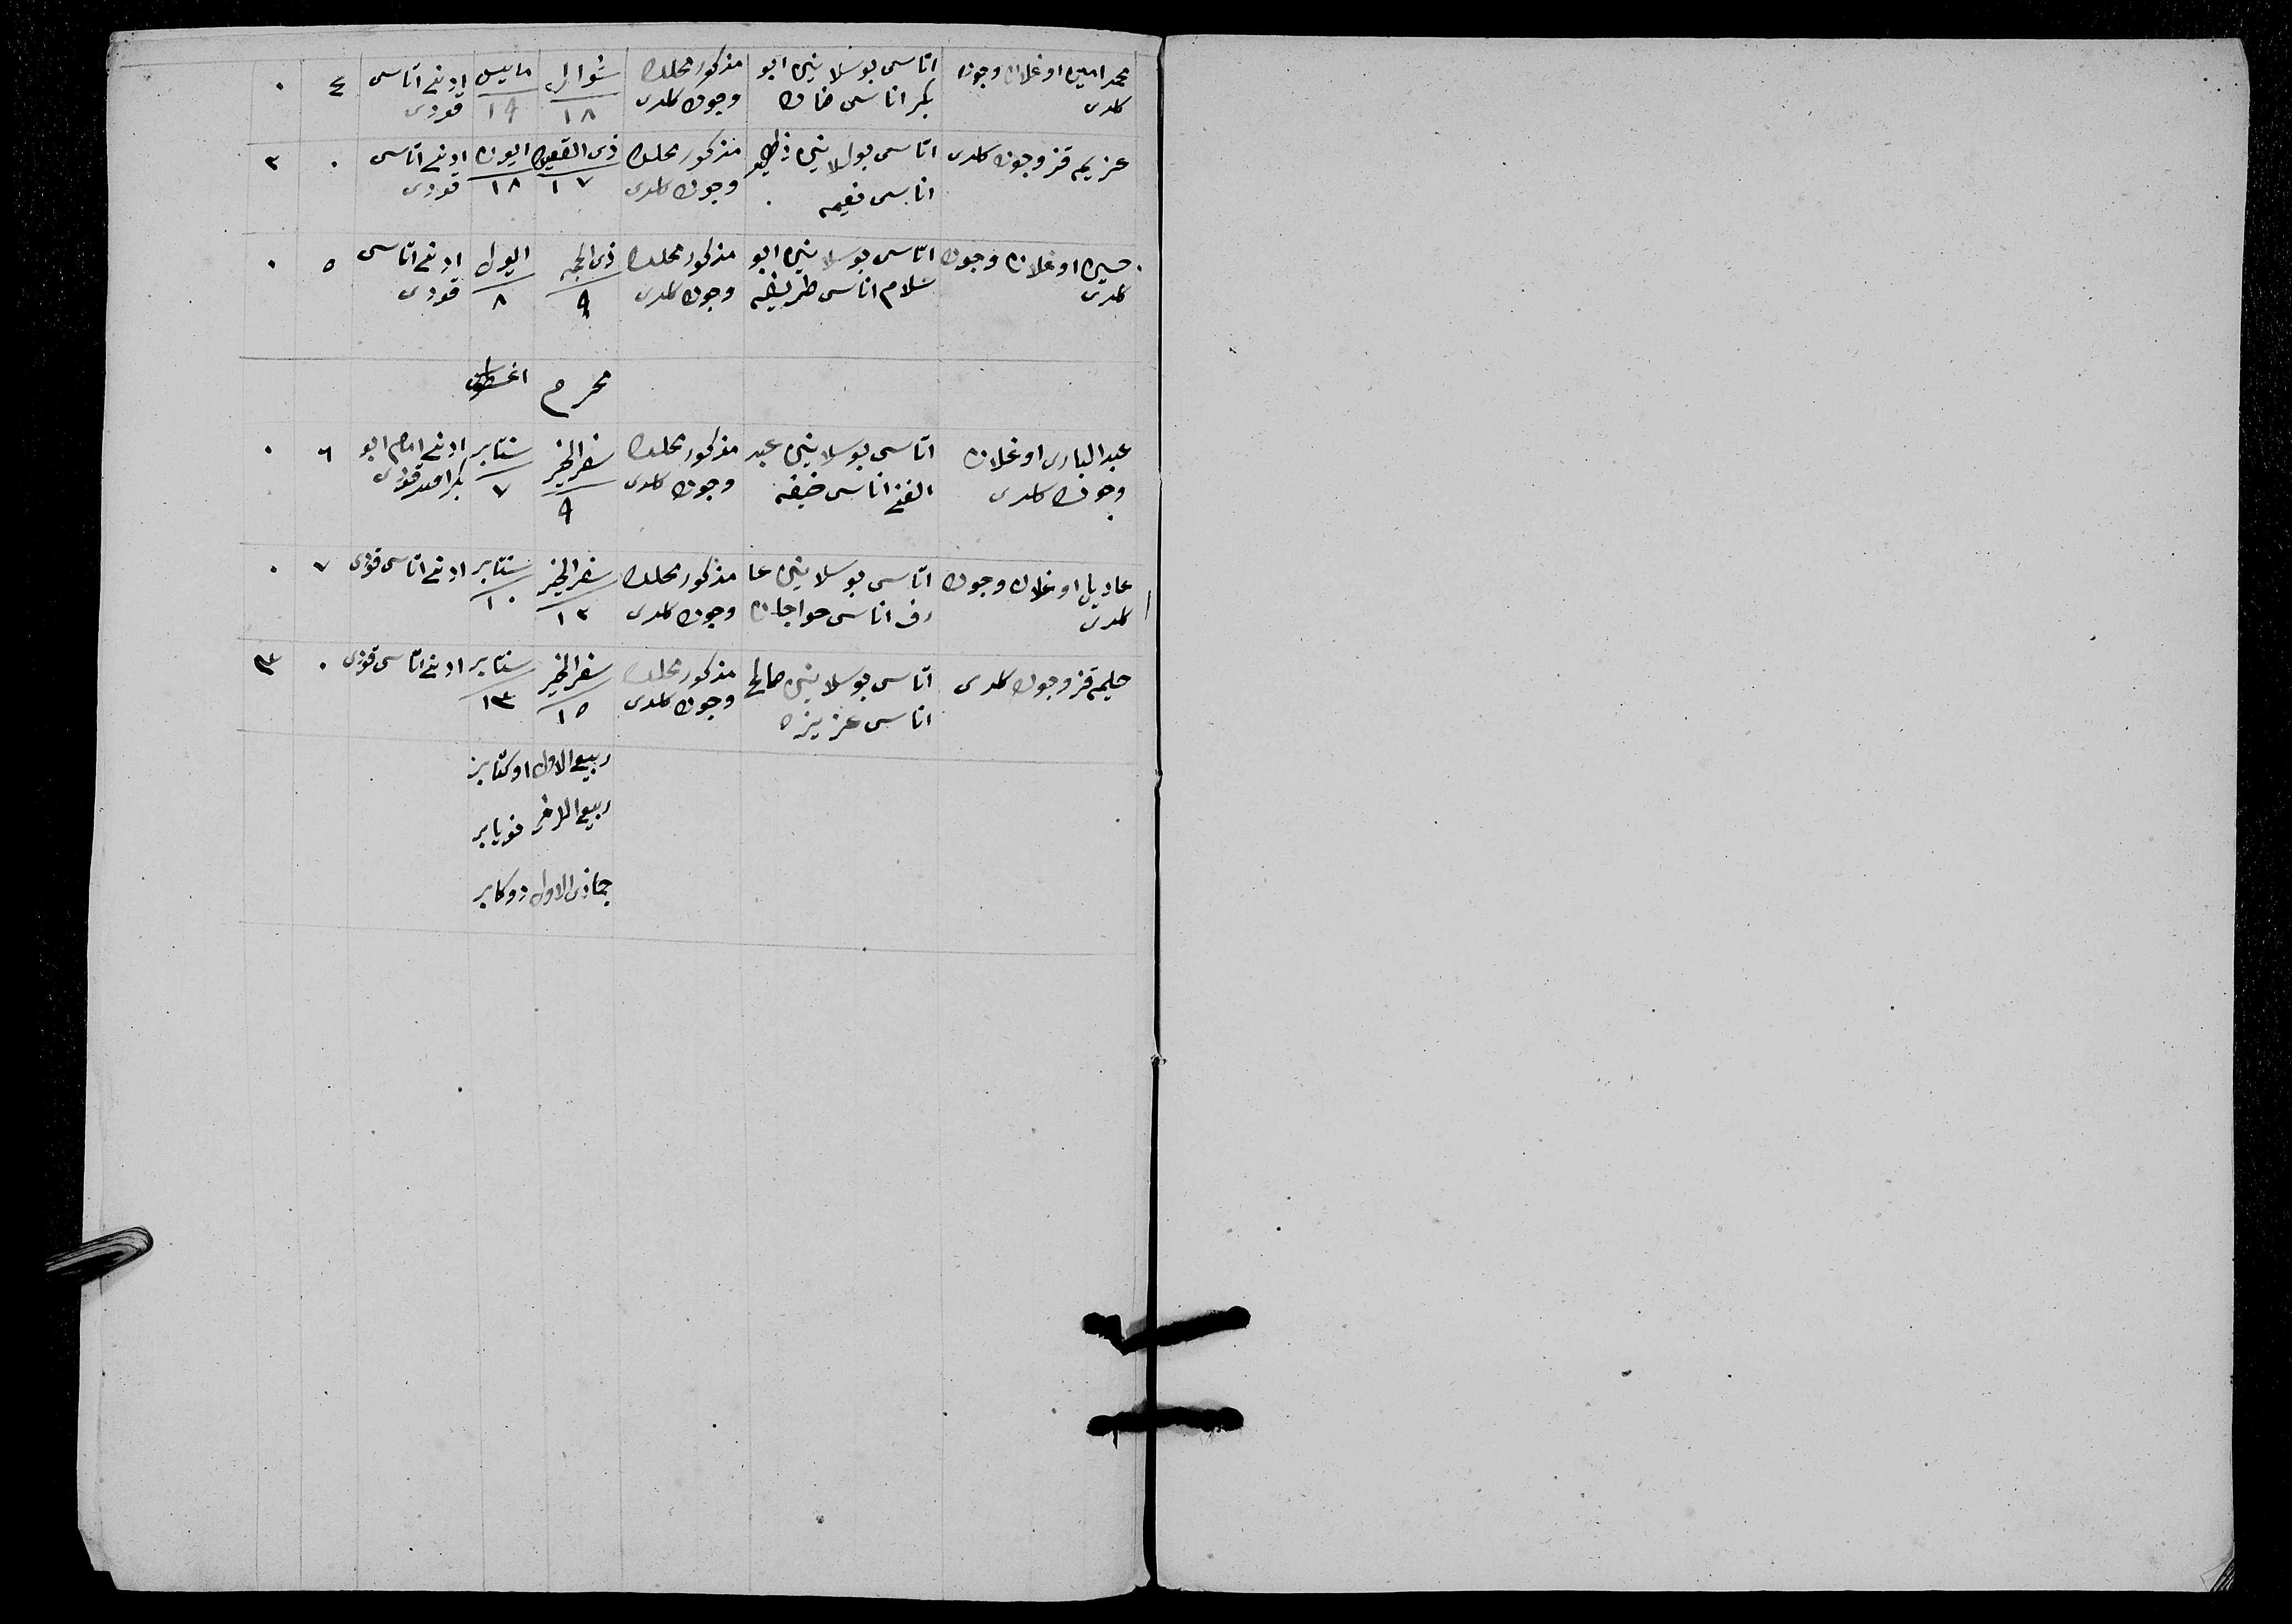 محمد امین اوغلان وجوده کلدی
اتاسی بوسلاینین ابو بکر اناسی خان
مذکور محلده وجوده کلدی
شوال ١٨
مایس ١٩
ادنی اتاسی قویدی
٤
٠
عزیم قز وجوده کلدی
اناسی نعیمه
مذکور محلده وجوده کلدی
ذی القعده ١٧
ایون ١٨
ادنی اتاسی قویدی
٠
٢
حسین اوغلان وجوده کلدی
اتاسی بوسلاینین ابو سلام اناسی ظریفه
مذکور محلده وجوده کلدی
ذی الحجه ٩
ایول ٨
ادنی اتاسی قویدی
٥
٠
محرم
اغسطوس
عبد الباری اوغلان وجوده کلدی
اتاسی بوسلاینین عبد الغنی اناسی
مذکور محلده وجوده کلدی
سفر الخیر ٩
سنتابر ٧
ادنی امام ابو بکر قویدی
٦
٠
اوغلان وجوده کلدی
اتاسی بوسلاینین عا رف اناسی خواجان
مذکور محلده وجوده کلدی
سفر الخیر ١٢
سنتابر ١٠
ادنی اتاسی قویدی
٧
٠
حلیمه قز وجوده کلدی
اتاسی بوسلاینین صالح اناسی عزیزه
مذکور محلده وجوده کلدی
سفر الخیر ١٥
سنتابر ١٣
ادنی اتاسی قویدی
٠
٣
ربیع الاول اوکتابر
ربیع الاخر نویابر
جماذی الاول دوکابر